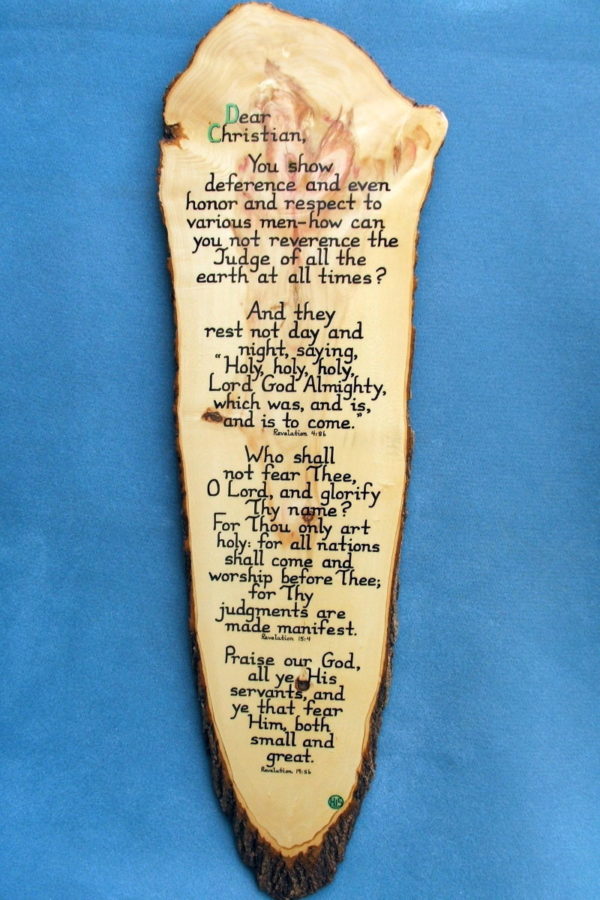 Dear
Christian,
You show
deference and even
honor and respect to
various men-how can
you not reverence the
Judge of all the
earth at all times?
And they
rest not day and
night, saying,
"Holy, holy, holy,
Lord God Almighty,
which was, and is,
and is to come."
Revelation 4:8b
Who shall
not fear Thee,
O Lord, and glorify
Thy name?
For Thou only art
holy: for all nations
shall come and
worship before Thee;
for Thy
judgments are
made manifest.
Revelation 15:4
Praise our God,
all ye His
servants, and
ye that fear
Him, both
small and
great.
Revelation 19:5b
HIS